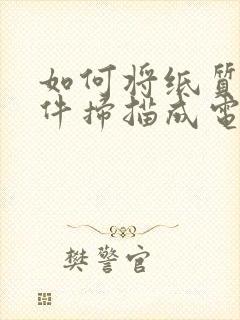 如何将纸质
件掃描成電
樊警官